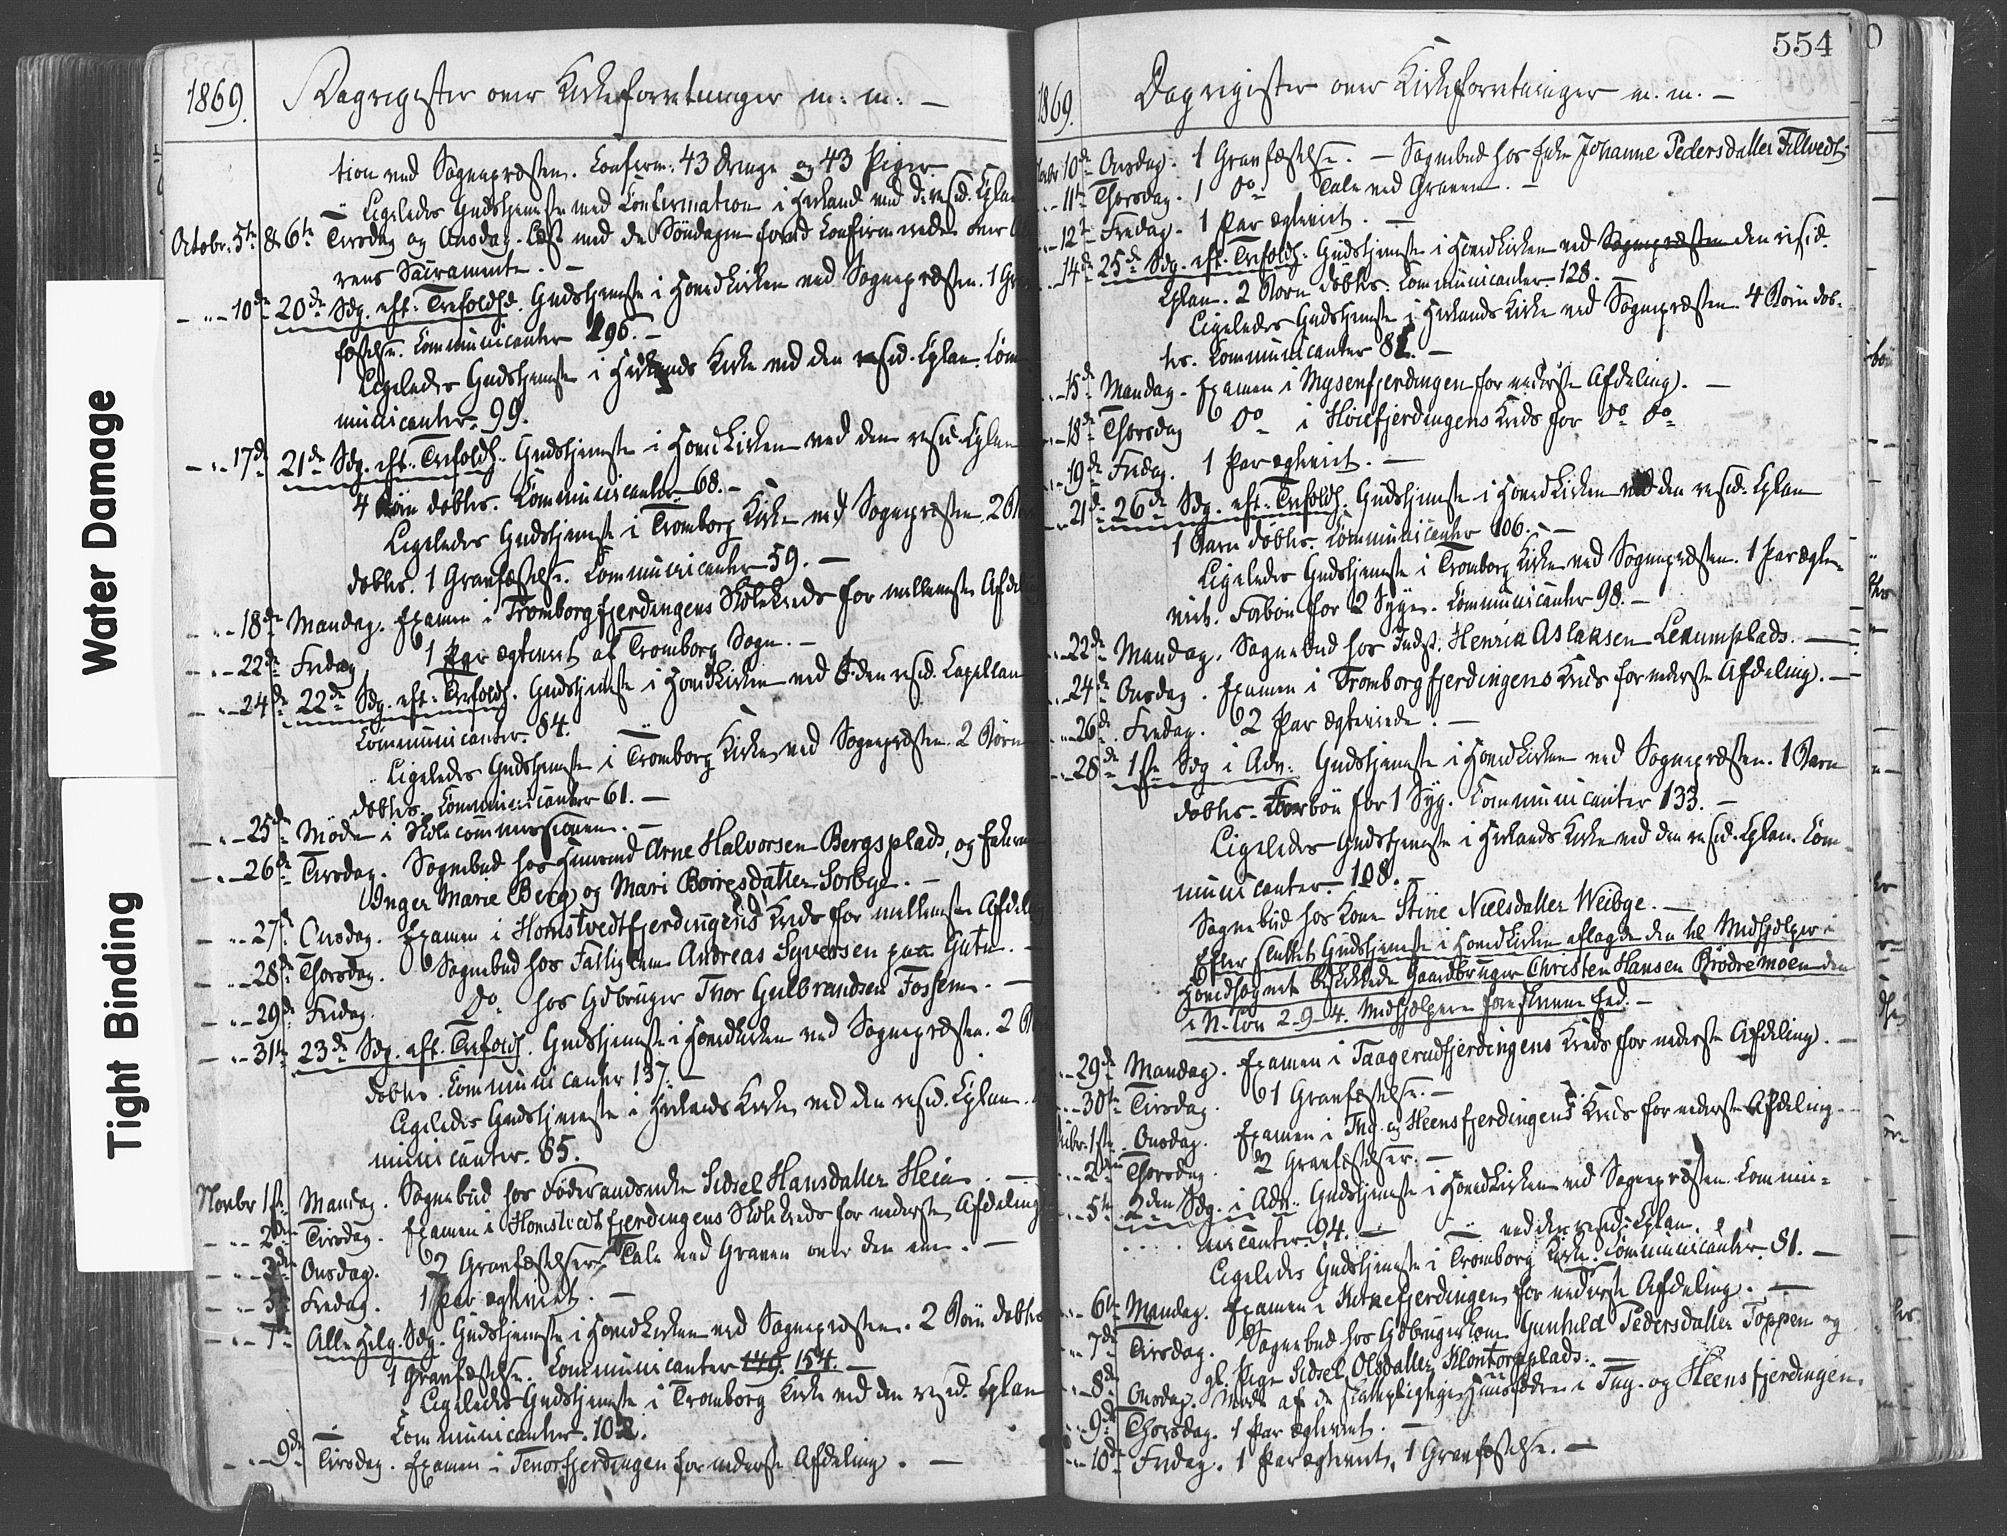 Water Damage
Tight Binding
1869. Dagregister over Kirkeforretninger m: m: –
tion ved Sognepræsten. Confirm: 43 Drenge og 43 Piger.
Ligeledes Gudstjeneste med Confirmation i Hærland ved d: resid. Cplan
Octobr. 5te & 6te Tirsdag og Onsdag. Læst med de Søndagen forud Confirmerede over
rens Sacramente. –
– „ – 10de 20de Sdg. eft. Trefoldhd. Gudstjeneste i Hovedkirken ved Sognepræsten. 1 Gra
fæstelse. Communicanter 196. –
Ligeledes Gudstjeneste i Hærlands Kirke ved den resid. Cplan. Com
municanter. 99.
– „ – 17de 21de Sdg. eft. Trefoldh. Gudstjeneste i Hovedkirken ved den resid. Cplan
4 Børn døbtes. Communicanter 68. –
Ligeledes Gudstjeneste i Trømborg Kirke ved Sognepræsten. 2 Børn
døbtes. 1 Gravfæstelse. Communicanter 59. –
– „ – 18de Mandag. Examen i Trømborgfjerdingens Skolekreds for mellemste Afdeling
– „ – 22de Fredag 1 Par ægteviet af Trømborg Sogn. –
– „ – 24de 22de Sdg. eft. Trefoldh. Gudstjeneste i Hovedkirken ved den resid. Capellan
Communicanter. 84.
Ligeledes Gudstjeneste i Trømborg Kirke, ved Sognepræsten. 2 Børn
døbtes. Communicanter 61. –
– „ – 25de Møde i Skolecommissionen. –
– „ – 26de Tirsdag. Sognebud hos Huusmd Arne Halvorsen Bergsplads, og Enkerne
Inger Marie Berg og Mari Børresdatter Sorbye. –
– „ – 27de Onsdag. Examen i Homstvedtfjerdingens Kreds for mellemste Afdeling
– „ – 28de Thorsdag. Sognebud hos Fattiglem Andreas Syversen paa Guten. –
– „ – 29de Fredag. Do hos Gdbruger Thor Gulbrandsen Fossem. –
– „ – 31te 23de Sdg. eft. Trefoldh. Gudstjeneste i Hovedkirken ved Sognepræsten. 2 Børn
døbtes. Communicanter 137. –
Ligeledes Gudstjeneste i Hærlands Kirke, ved den resid. Cplan.
municanter. 85.
Novbr 1ste Mandag. Sognebud hos Føderaadsenke Sidsel Hansdatter Heia. –
– „ – 2den Tirsdag. Examen i Homstvedtfjerdingens Skolekreds for nederste Afdeling
– „ – 3die Onsdag. 2 Gravfæstelser. Tale ved Graven over den ene. –
– „ – 5te Fredag. 1 Par ægteviet. –
– „ – 7de Alle Helg. Sdg. Gudstjeneste i Hovedkirken ved Sognepræsten. 2 Børn døbtes
1 Gravfæstelse. Communicanter 149. 154. –
Ligeledes Gudstjeneste i Trømborg Kirke ved den resid. Cplan
Communicanter. 102.
– „ – 9de Tirsdag. Examen i Tenorfjerdingen for nederste Afdeling. –
554
1869. Dagregister over Kirkeforretninger m. m. –
Novbr 10de Onsdag. 1 Gravfæstelse. – Sognebud hos Enke Johanne Pedersdatter Tillvedt.
„ – 11te Thorsdag. 1 Do Tale ved Graven. –
„ – 12te Fredag. 1 Par ægteviet. –
„ – 14de 25de Sdg. eft. Trefoldh. Gudstjeneste i Hovedkirken ved Sognepræsten den resid.
Cplan. 2 Børn døbtes. Communicanter 128. –
Ligeledes Gudstjeneste i Hærlands Kirke ved Sognepræsten. 4 Børn døb-
tes. Communicanter 81. –
„ – 15de Mandag. Examen i Mysenfjerdingen for nederste Afdeling. –
„ – 18de Thorsdag Do i Hvilefjerdingens Kreds for Do Do
„ – 19de Fredag. 1 Par ægteviet. –
„ – 21de 26de Sdg. eft. Trefoldh. Gudstjeneste i Hovedkirken ved den resid. Cplan
1 Barn døbtes. Communicanter 106. –
Ligeledes Gudstjeneste i Trømborg Kirke ved Sognepræsten. 1 Par ægte-
viet. Forbøn for 2 Syge. Communicanter 98. –
„ – 22de Mandag. Sognebud hos Indst. Henrik Aslaksen Lekumplads. –
„ – 24de Onsdag. Examen i Trømborgfjerdingens Kreds for nederste Afdeling. –
„ – 26de Fredag. 2 Par ægteviede. –
„ – 28de 1ste Sdg i Adv: Gudstjeneste i Hovedkirken ved Sognepræsten. 1 Barn
døbtes. Forbøn for 1 Syg. Communicanter 133. –
Ligeledes Gudstjeneste i Hærlands Kirke ved den resid. Cplan. Com
municanter. 108. –
Sognebud hos Kone Stine Nielsdatter Weibye. –
Efter sluttet Gudstjeneste i Hovedkirken aflagde den til Medhjælper i
Hovedsognet beskikkede Gaardbruger Christen Hansen Brødremoen den
i N. Lov 2-9-4. Medhjælperen foreskrevne Eed. –
„ – 29de Mandag. Examen i Taagerudfjerdingens Kreds for nederste Afdeling. –
„ – 30te Tirsdag. 1 Gravfæstelse. –
Decbr. 1ste Onsdag. Examen i Ing. og Heensfjerdingens Kreds for nederste Afdeling.
„ – 2den Thorsdag. 2 Gravfæstelser. –
„ – 5te 2den Sdg. i Adv. Gudstjeneste i Hovedkirken ved Sognepræsten. Commu-
nicanter. 94. –
ved den resid. Cplan.
Ligeledes Gudstjeneste i Trømborg Kirke. Communicanter. 81. –
„ – 6te Mandag. Examen i Kirkefjerdingen for nederste Afdeling. –
„ – 7de Tirsdag. Sognebud hos Gdbrugerkone Gunhild Pedersdatter Toppen og
gl. Pige Sidsel Olsdatter Klontorpplads. –
„ – 8de Onsdag. Møde af de skatpligtige Huusfædre i Ing. og Heensfjerdingen.
„ – 9de Thorsdag. 1 Par ægteviet. –
„ – 10de Fredag. 1 Par ægteviet, 1 Gravfæstelse. –